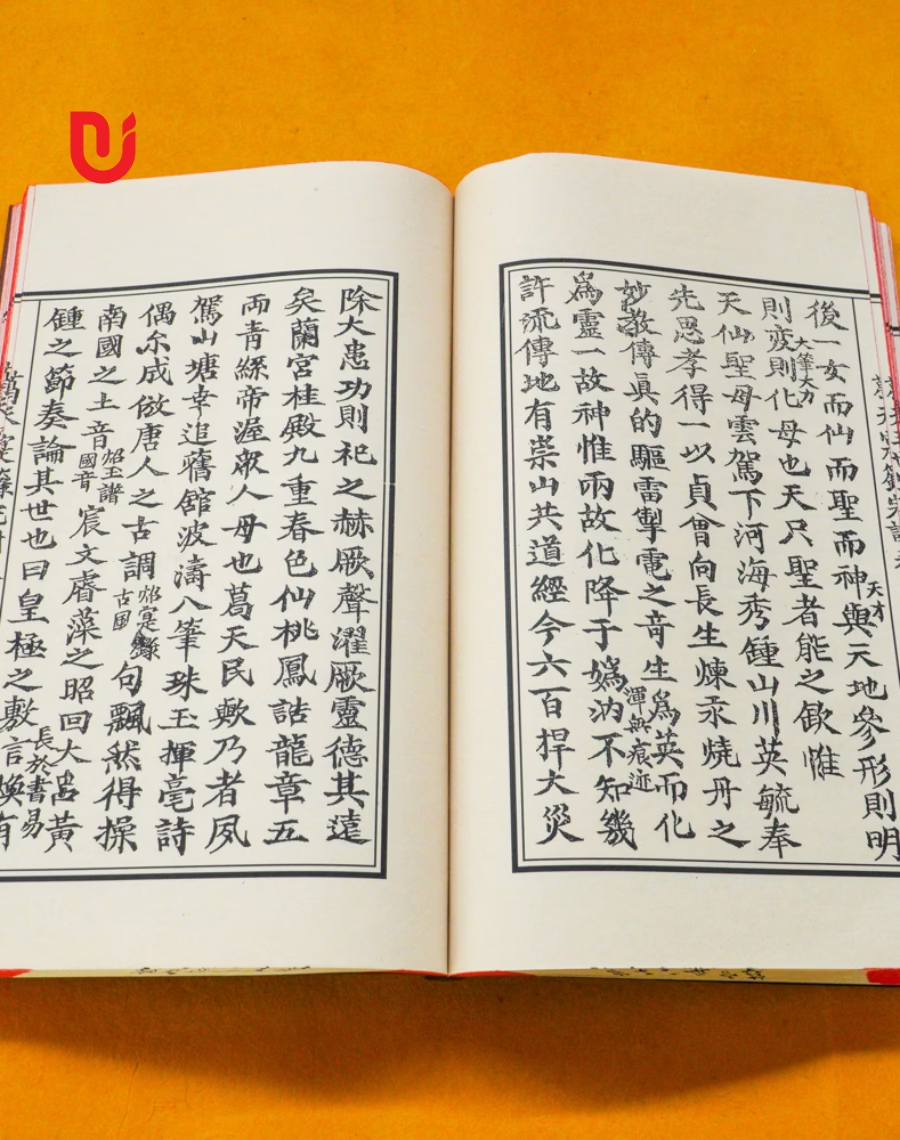 後一女而仙而聖而神與天地參形則明
天才
則変則化母也天只聖者能之歟惟
大筆大力
天仙聖母雲駕下河海秀鍾山川英毓奉
先思孝得一以貞會向長生煉汞燒丹之
妙教傳真的驅雷掣電之奇生爲英而化
渾無痕迹
爲靈一故神惟兩故化降于媯汭不知幾
許流傳地有崇山共道經今六百捍大災
除大患功則祀之赫厥聲濯厥靈德其遠
矣蘭宮桂殿九重春色仙桃鳳誥龍章五
雨青絲帝渥衆人母也葛天民歟乃者夙
駕山塘幸追舊舘波濤八筆珠玉揮毫詩
偶尓成倣唐人之古調炤寔錄古風句飄然得操
南國之土音炤玉譜國音宸文睿藻之昭回大呂黃
鍾之節奏論其世也曰皇極之敷言煥有
長於書易